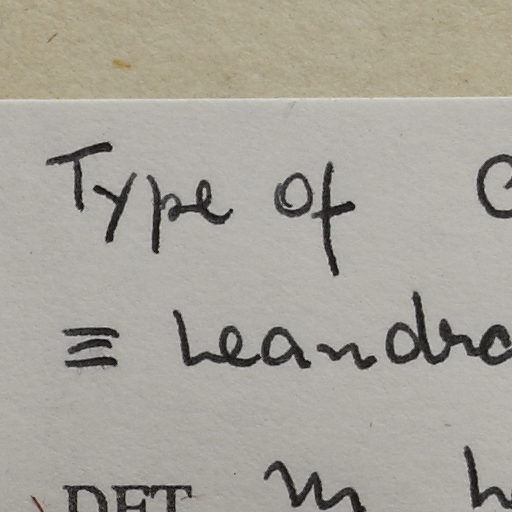 Type of
≡ Leandra
DET